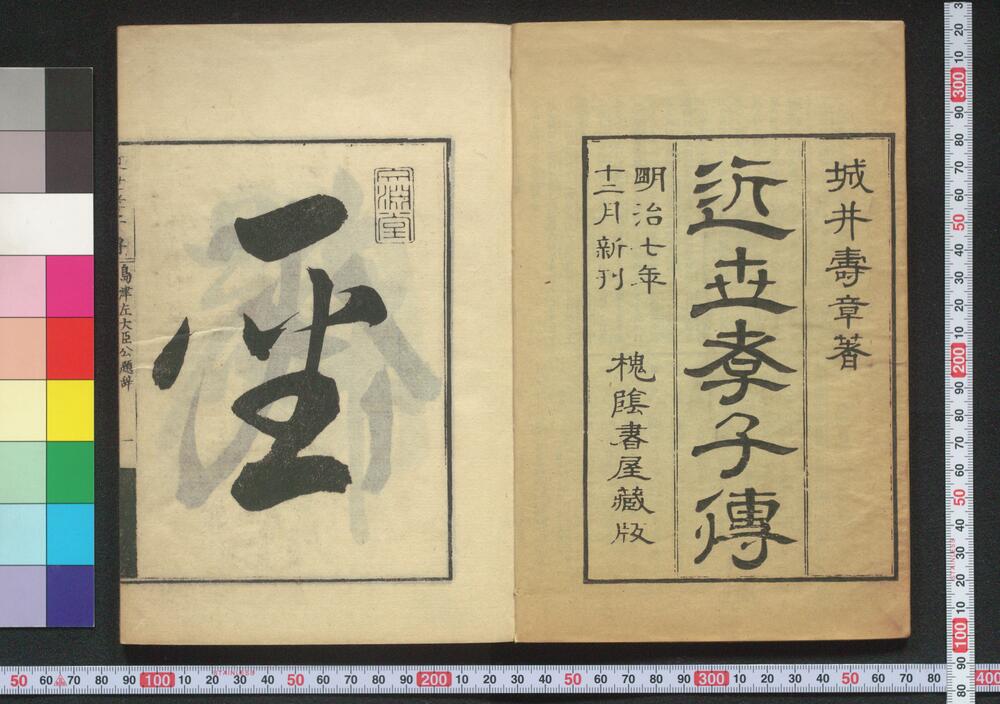 城井壽章著
近世孝子傳
明治七年
十二月新刊
槐陰書屋藏版
至
島津左大臣公題辞
一